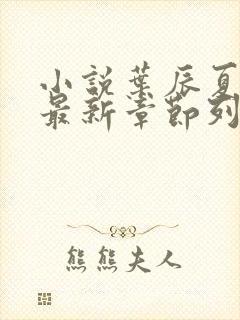 小說葉辰夏
最新章節列
熊熊夫人